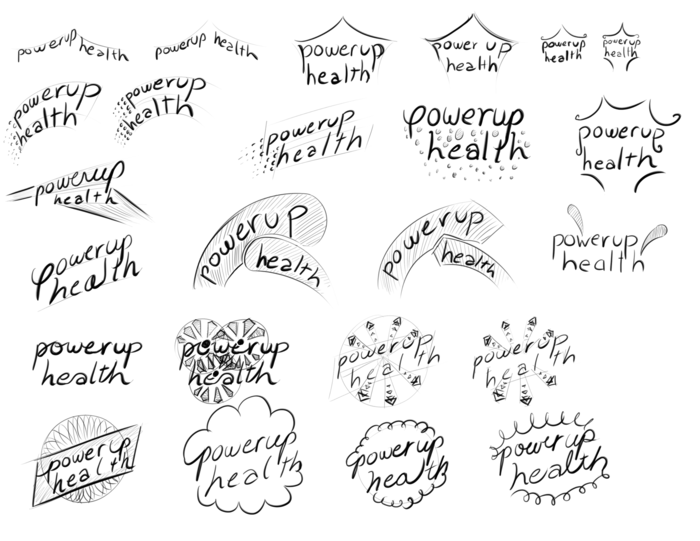 powerup health
powerup health
powerup
health
power up
health
powerup
health
powerup
health
powerup
health
powerup
health
powerup
health
powerup
health
powerup
health
powerup
health
powerup
health
powerup
health
powerup
health
powerup
health
powerup
health
powerup
health
powerup
health
powerup
health
powerup
health
powerup
health
powerup
health
powerup
health